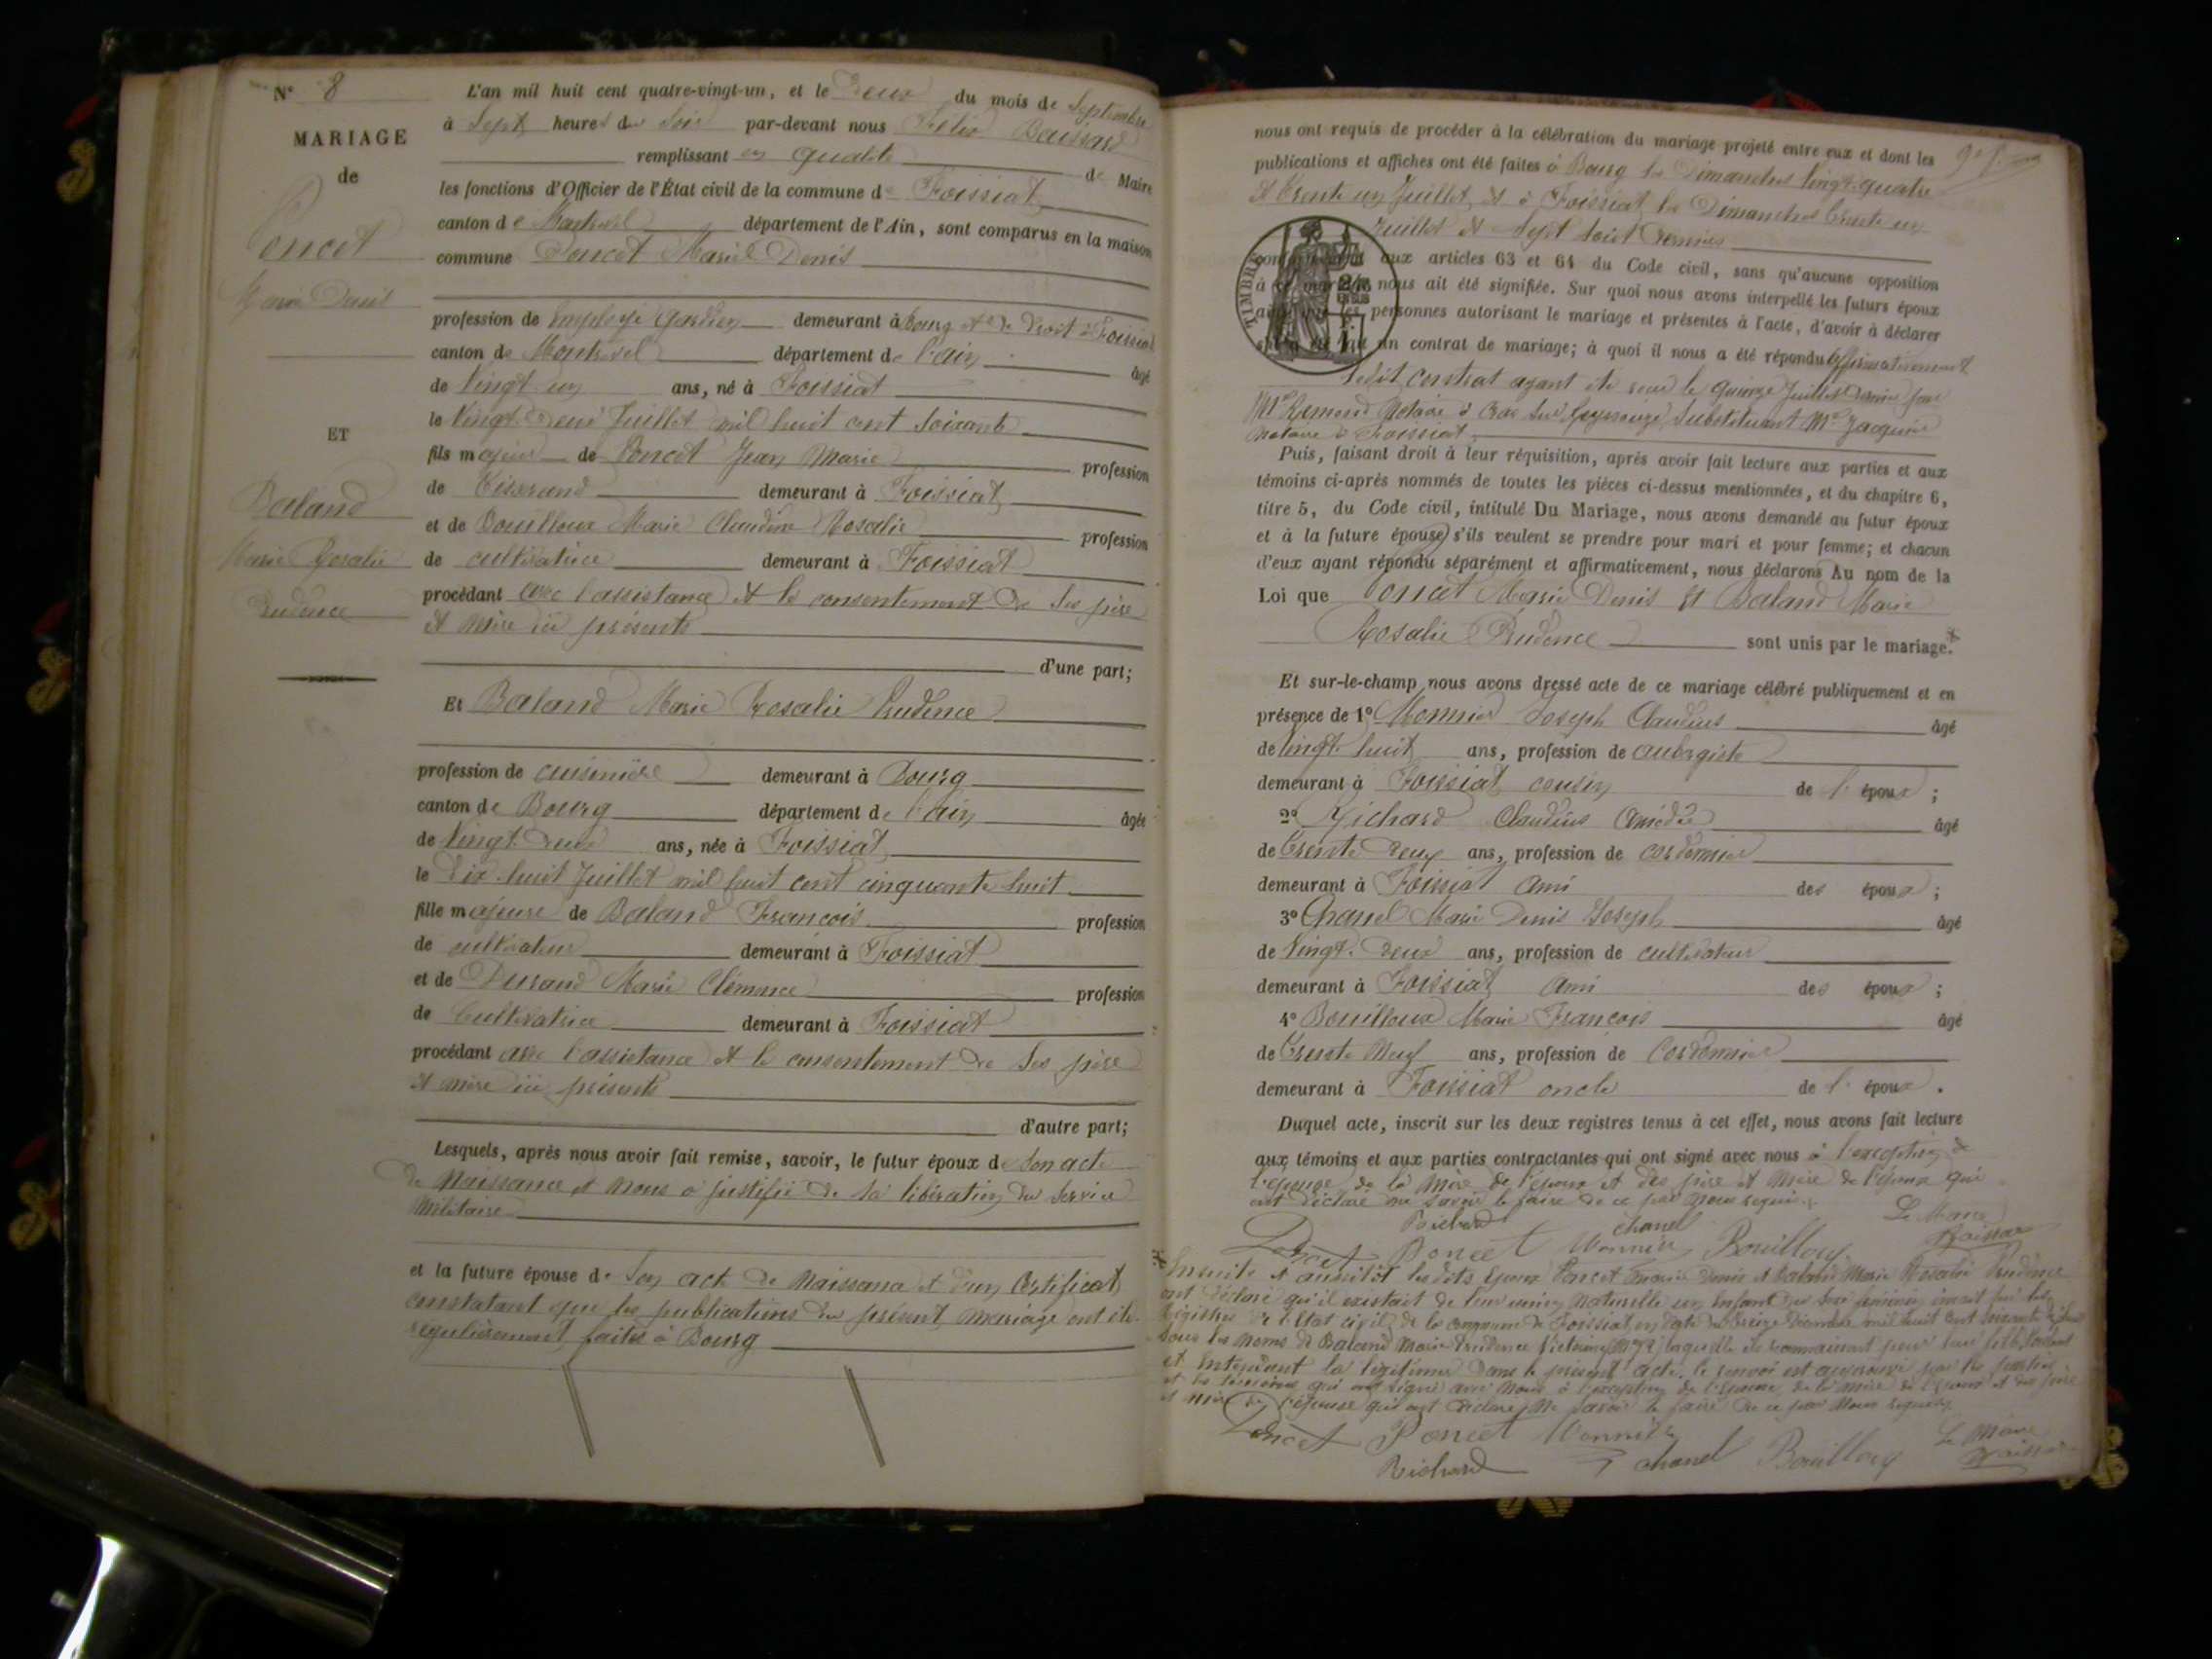 N° 8
MARIAGE
de
Poncet
Marie Denis
ET
Baland
Marie Rosalie
Prudence
L'an mil huit cent quatre-vingt-un, et le Deux du mois de Septembre
à Sept heures du Soir par-devant nous Félix
remplissant en qualité de Maire
les fonctions d'Officier de l'État civil de la commune de Foissiat
canton de Montrevel département de l'Ain, sont comparus en la maison
commune Poncet Marie Denis
profession de Employé demeurant à Bourg et de droit à Foissiat
canton de Montrevel département de l'ain âgé
de Vingt un ans, né à Foissiat
le Vingt Deux Juillet mil huit cent Soixante
fils majeur de Poncet Jean Marie profession
de Tisserand demeurant à Foissiat
et de Bouilloux Marie Claudine Rosalie profession
de cultivatrice demeurant à Foissiat
procédant avec l'assistance et le consentement de Ses père
et mère ici présents
d'une part;
Et Baland Marie Rosalie Prudence
profession de cuisinière demeurant à Bourg
canton de Bourg département de l'ain âgée
de Vingt Deux ans, née à Foissiat
le Dix huit Juillet mil huit cent cinquante huit
fille majeure de Baland François profession
de cultivateur demeurant à Foissiat
et de Durand Marie Clémence profession
de Cultivatrice demeurant à Foissiat
procédant avec l'assistance et le consentement de Ses père
et mère ici présents
d'autre part;
Lesquels, après nous avoir fait remise, savoir, le futur époux de Son acte
de Naissance et Nous a justifié de Sa libération du Service
Militaire
et la future épouse de Son acte de Naissance et d'un Certificat
constatant que les publications du présent mariage ont été
régulièrement faites à Bourg
nous ont requis de procéder à la célébration du mariage projeté entre eux et dont les
publications et affiches ont été faites à Bourg les Dimanches Vingt-quatre
et Trente un Juillet et à Foissiat les Dimanches Trente un
Juillet et Sept Août Dernier
TIMBRE
conformément aux articles 63 et 64 du Code civil, sans qu'aucune opposition
à ce mariage nous ait été signifiée. Sur quoi nous avons interpellé les futurs époux
ainsi que les personnes autorisant le mariage et présentes à l'acte, d'avoir à déclarer
s'il a été fait un contrat de mariage; à quoi il nous a été répondu affirmativement
Ledit contrat ayant été reçu le quinze Juillet dernier par
Me Notaire à Cras Sur Reyssouze, Substituant Me Jacquin
Notaire à Foissiat.
Puis, faisant droit à leur réquisition, après avoir fait lecture aux parties et aux
témoins ci-après nommés de toutes les pièces ci-dessus mentionnées, et du chapitre 6,
titre 5, du Code civil, intitulé Du Mariage, nous avons demandé au futur époux
et à la future épouse s'ils veulent se prendre pour mari et pour femme; et chacun
d'eux ayant répondu séparément et affirmativement, nous déclarons Au nom de la
Loi que Poncet Marie Denis Et Baland Marie
Rosalie Prudence sont unis par le mariage.
Et sur-le-champ nous avons dressé acte de ce mariage célébré publiquement et en
présence de 1° Monnier Joseph Claudius âgé
de Vingt huit ans, profession de aubergiste
demeurant à Foissiat cousin de l'époux ;
2° Richard Claudius Amédée âgé
de Trente Deux ans, profession de cordonnier
demeurant à Foissiat ami des époux ;
3° Chanel Marie Denis Joseph âgé
de Vingt Deux ans, profession de cultivateur
demeurant à Foissiat Ami des époux ;
4° Bouilloux Marie François âgé
de Trente Neuf ans, profession de Cordonnier
demeurant à Foissiat oncle de l'époux .
Duquel acte, inscrit sur les deux registres tenus à cet effet, nous avons fait lecture
aux témoins et aux parties contractantes qui ont signé avec nous à l'exception de
l'épouse de la Mère de l'époux et des père et Mère de l'épouse qui
ont déclaré ne Savoir le faire de ce par Nous requis.
Richard chanel Le Maire
Poncet Poncet Monnier Bouilloux
Ensuite et aussitôt lesdits époux Poncet Marie Denis et Baland Marie Rosalie Prudence
ont déclaré qu'il existait de leur union Naturelle un Enfant du Sexe féminin inscrit sur les
Registres de l'État civil de la commune de Foissiat en date du Treize Décembre mil huit cent Soixante
Sous les Noms de Baland Marie Prudence Victorine laquelle ils reconnaissent pour leur
et Entendent la légitimer Dans le présent acte. le renvoi est approuvé par les parties
et les témoins qui ont signé avec Nous à l'exception de l'Epouse, de la mère de l'Epoux et des père
et mère de l'épouse qui ont déclaré Ne Savoir le faire de ce par Nous requis.
Poncet Poncet Monnier Le Maire
Richard chanel Bouilloux